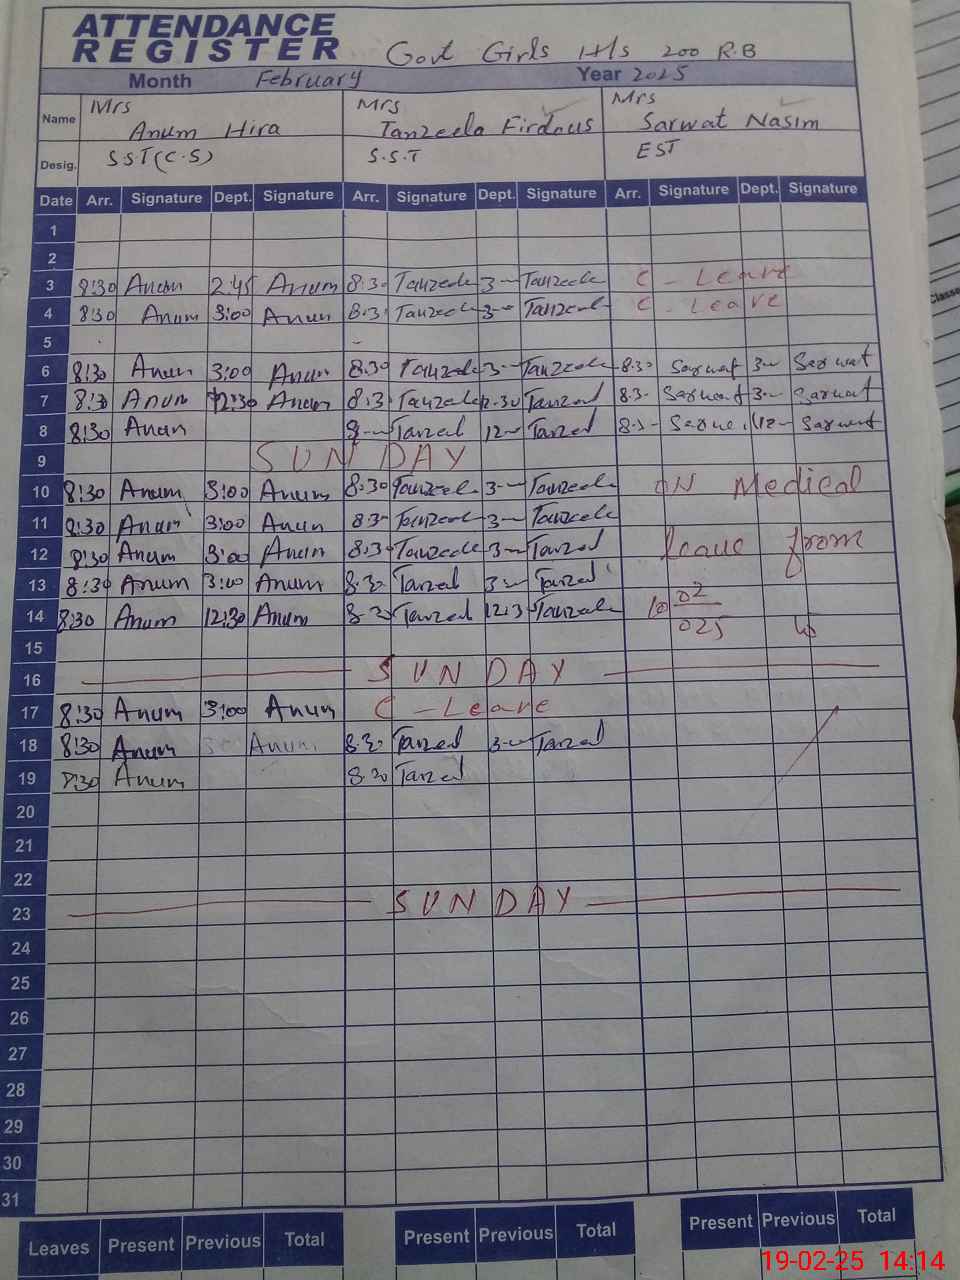 ATTENDANCE
REGISTER Govt Girls H/s 200 R.B
Month February Year 2025
Name Mrs Anum Hira Mrs Tanzeela Firdous Mrs Sarwat Nasim
Desig. S.S.T (C.S) S.S.T EST
Date Arr. Signature Dept. Signature Arr. Signature Dept. Signature Arr. Signature Dept. Signature
1
2
3 8:30 Anum 2:45 Anum 8:30 Tanzeele 3- Tanzeele C - Leave
4 8:30 Anum 3:00 Anum 8.3 Tanzeel 3- Tanzeel C - Leave
5
6 8:30 Anum 3:00 Anum 8.30 Tanzeele 3- Tanzeele 8.3- Sarwat 3- Sarwat
7 8:30 Anum 12:30 Anum 8.3 Tanzeele 12.30 Tanzeel 8.3- Sarwat 3- Sarwat
8 8:30 Anum 8- Tanzeel 12- Tanzeel 8.3- 12- Sarwat
9 SUNDAY
10 8:30 Anum 3:00 Anum 8.30 Tanzeel 3- Tanzeele ON Medical
11 8:30 Anum 3:00 Anum 8.3- Tanzeel 3- Tanzeele
12 8:30 Anum 3:00 Anum 8.3 Tanzeele 3- Tanzeel leave from
13 8:30 Anum 3:00 Anum 8.30 Tanzeel 3- Tanzeel
14 8:30 Anum 12:30 Anum 8.30 Tanzeel 12:3 Tanzeele 10 02
15 025 to
16 SUNDAY
17 8:30 Anum 3:00 Anum C - Leave
18 8:30 Anum Anum 8.30 Tanzeel 3- Tanzeel
19 8:30 Anum 8.30 Tanzeel
20
21
22
23 SUNDAY
24
25
26
27
28
29
30
31
Leaves Present Previous Total Present Previous Total Present Previous Total
19-02-25 14:14